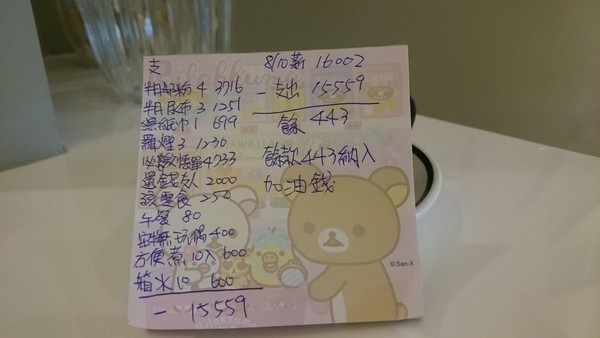 支
半月奶粉 4 3716
半月尿布 3 1251
濕紙巾 1 699
煙 3 1230
4733
還錢友人 2000
孩零食 250
午餐 80
玩偶 400
方便煮 10入 600
箱水 10 600
- 15559
8/10薪 16002
- 支出 15559
餘 443
餘款443納入
加油錢
©San-X